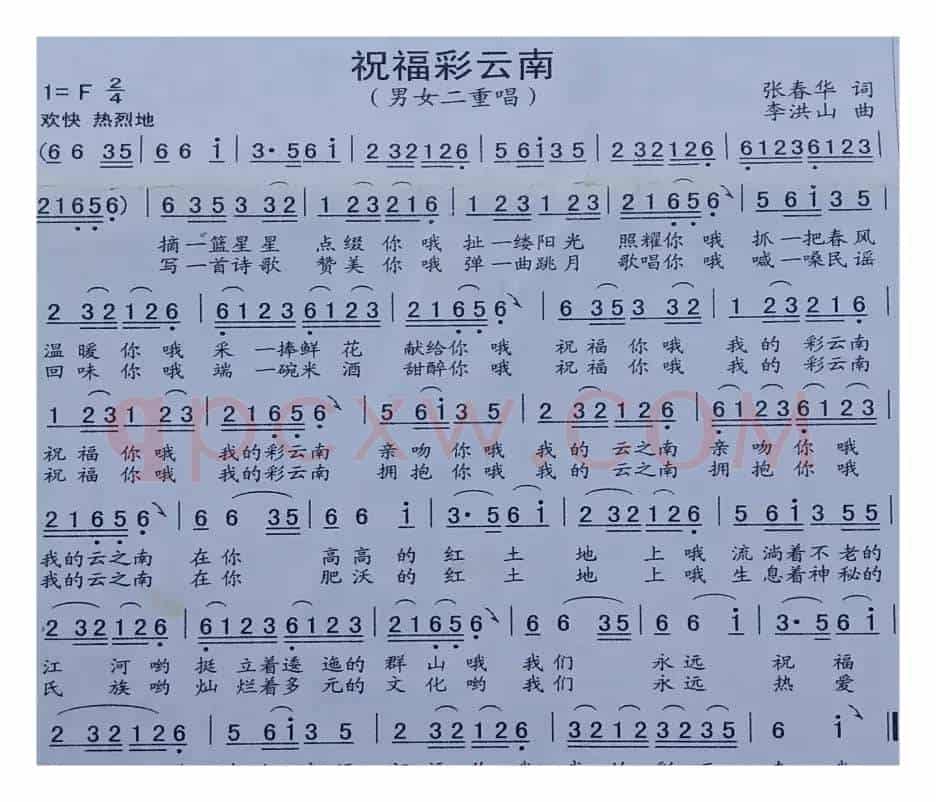 祝福彩云南
（男女二重唱）
1= F 2/4
张春华 词
李洪山 曲
欢快 热烈地
(6 6 35 | 6 6 i | 3· 56 i | 2 32126 | 5 6i35 | 2 32126 | 61236123
21656) | 6 353 32 | 1 23216 | 1 231 23 | 21656 | 5 6i3 5
摘一篮星星 点缀你哦 扯一缕阳光 照耀你哦 抓一把春风
写一首诗歌 赞美你哦 弹一曲跳月 歌唱你哦 喊一嗓民谣
2 32126 | 61236123 | 21656 | 6 353 32 | 1 23216
温暖你哦 采一捧鲜花 献给你哦 祝福你哦 我的彩云南
回味你哦 端一碗米酒 甜醉你哦 祝福你哦 我的彩云南
1 231 23 | 21656 | 5 6i3 5 | 2 32126 | 61236123
祝福你哦 我的彩云南 亲吻你哦 我的云之南 亲吻你哦
祝福你哦 我的彩云南 拥抱你哦 我的云之南 拥抱你哦
21656 | 6 6 35 | 6 6 i | 3· 56 i | 2 32126 | 5 6i3 55
我的云之南 在你 高高的红土地上哦 流淌着不老的
我的云之南 在你 肥沃的红土地上哦 生息着神秘的
2 32126 | 61236123 | 21656 | 6 6 35 | 6 6 i | 3· 56 i
江河哟 挺立着逶迤的群山哦 我们 永远祝福
民族哟 灿烂着多元的文化哟 我们 永远热爱
2 32126 | 5 6i3 5 | 2 32126 | 32123235 | 6 i
qpcxw.COM